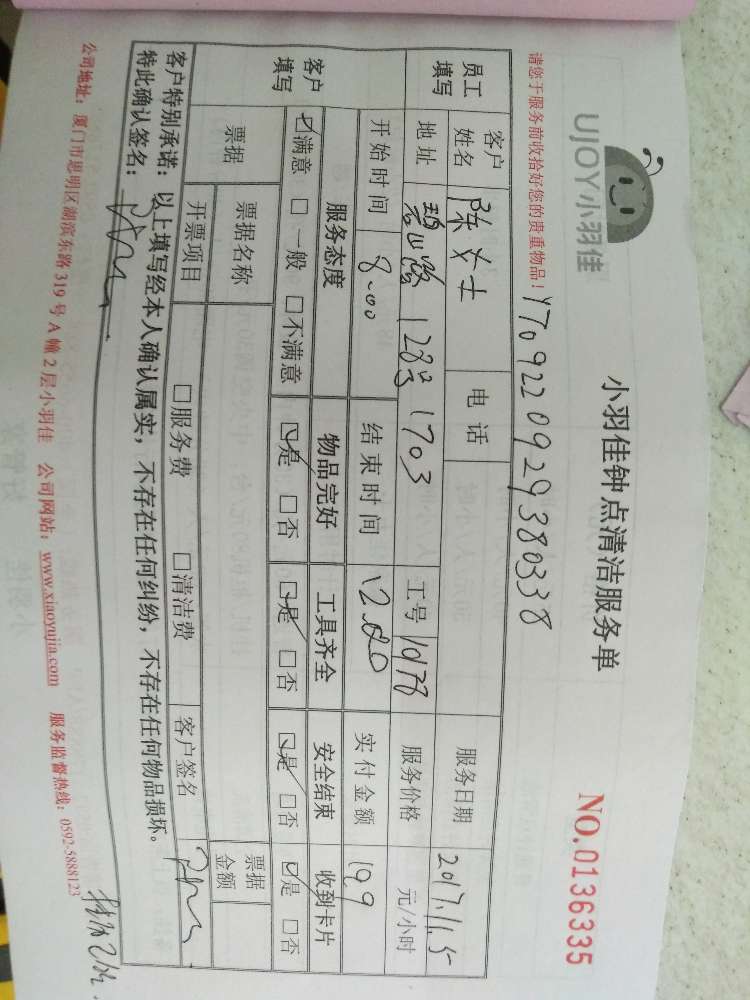 UJOY小羽佳
小羽佳钟点清洁服务单
NO.0136335
请您于服务前收拾好您的贵重物品！ YT09220929380338
员工填写 客户姓名 陈女士 电话 服务日期 2017.11.5
地址 碧山路 128号 1703 工号 10178 服务价格 元/小时
开始时间 8:00 结束时间 12:00 实付金额 199
客户填写 服务态度 物品完好 工具齐全 安全结束 收到卡片
☑满意 □一般 □不满意 ☑是 □否 ☑是 □否 ☑是 □否 ☑是 □否
票据 票据名称 票据金额
开票项目 □服务费 □清洁费 客户签名
客户特别承诺：以上填写经本人确认属实，不存在任何纠纷，不存在任何物品损坏。
特此确认签名：
公司地址：厦门市思明区湖滨东路319号A幢2层小羽佳 公司网站：www.xiaoyujia.com 服务监督热线：0592-5888123